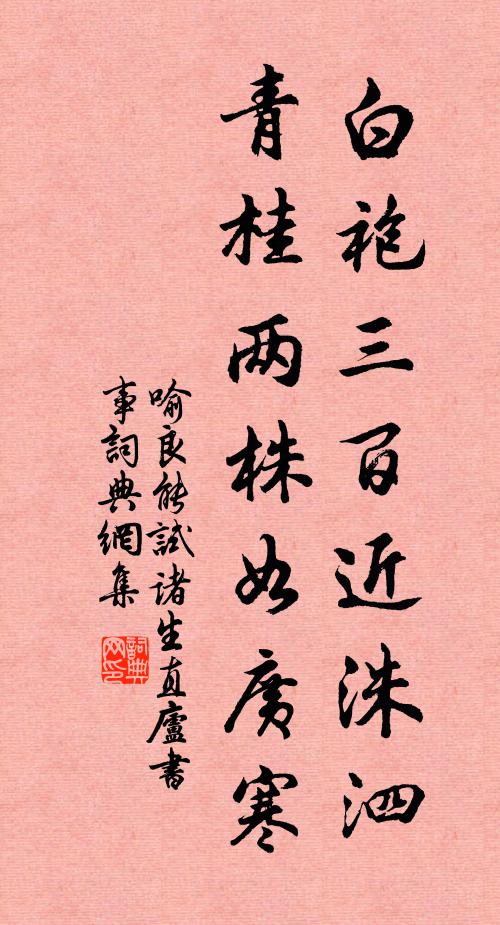 白袍三百近洙泗
青桂两株如廣寒
喻良能試诸生直廬書
事詞典網集
詞典网印